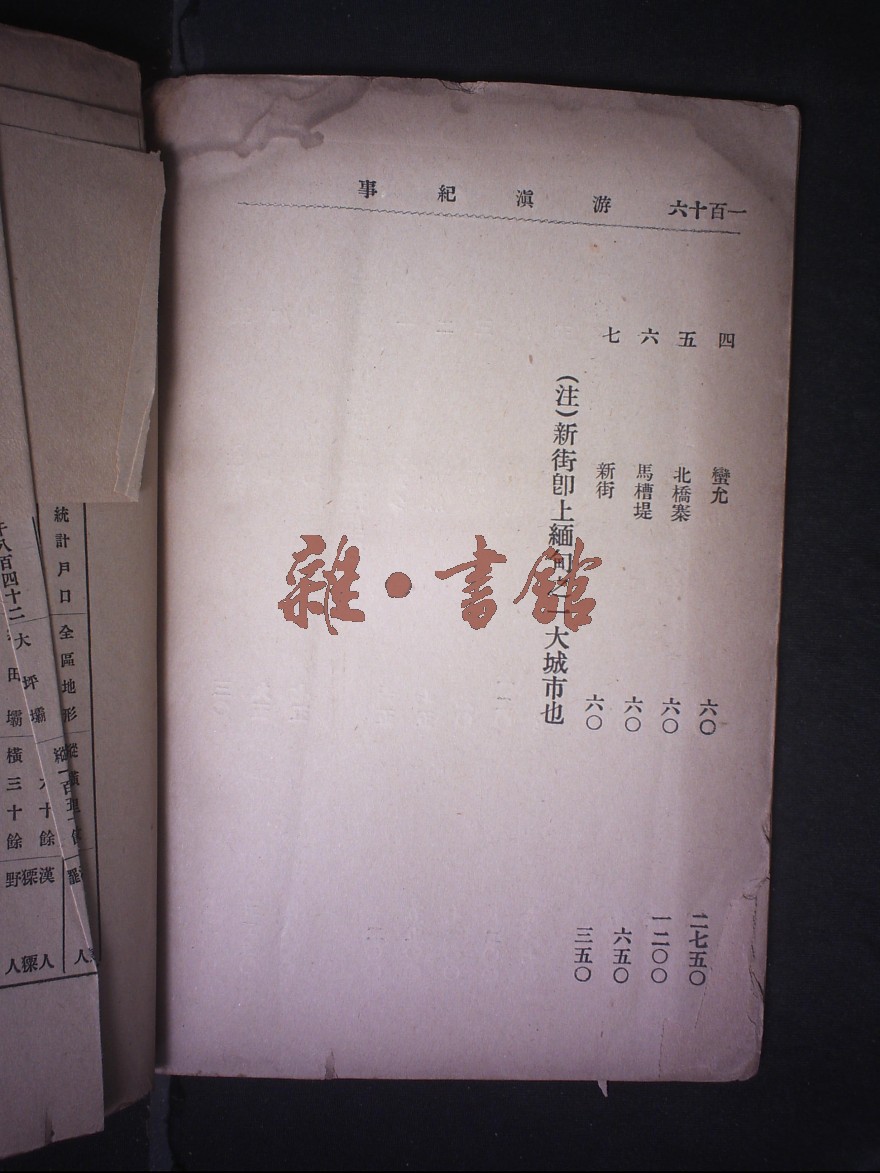 一百十六 游滇紀事
四 蠻允 六〇 二七五〇
五 北橋寨 六〇 一二〇〇
六 馬槽堤 六〇 六五〇
七 新街 六〇 三五〇
(注)新街卽上緬甸之一大城市也
雜·書館
統計戶口 全區地形
八百四十二 大坪壩
田壩 橫三十餘
六十餘 漢人
野人